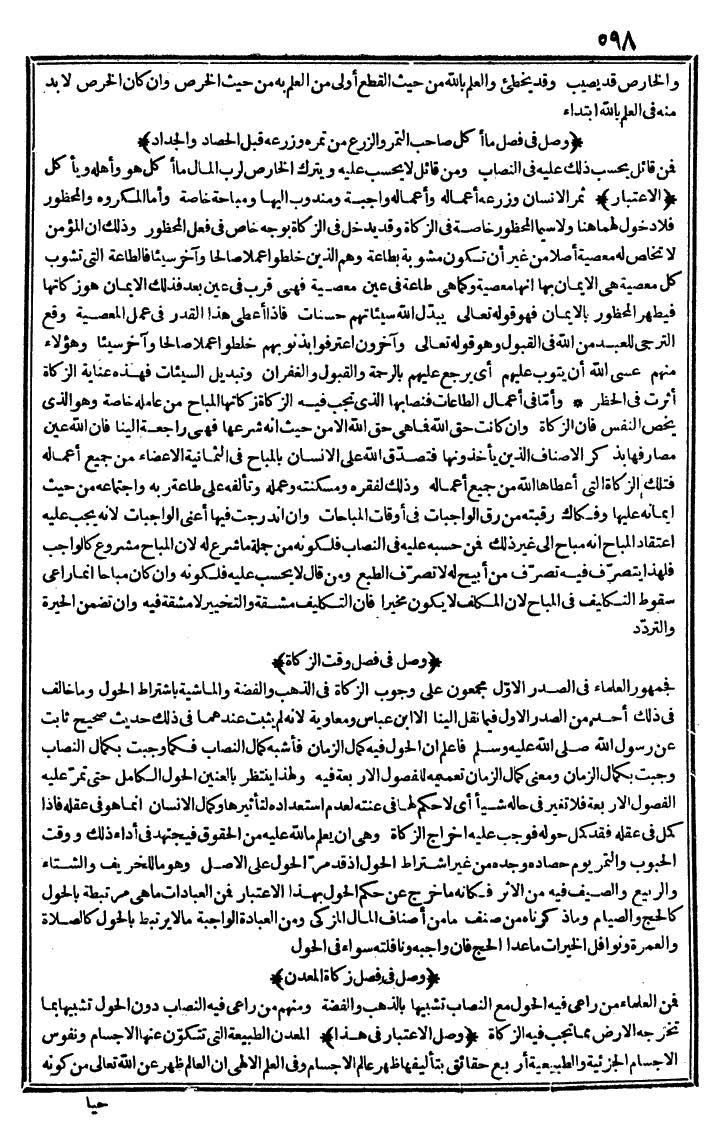 ٥٩٨
والخارص قد يصيب وقد يخطئ والعلم بالله من حيث القطع أولى من العلم به من حيث الخرص وان كان الخرص لا بد
منه فى العلم بالله ابتداء
﴿وصل فى فصل ما أكل صاحب التمر والزرع من تمره وزرعه قبل الحصاد والجداد﴾
فمن قائل يحسب ذلك عليه فى النصاب ومن قائل لا يحسب عليه ويترك الخارص لرب المال ما أكل هو وأهله ويأكل
﴿الاعتبار﴾ ثمر الانسان وزرعه أعماله وأعماله واجبة ومندوب اليها ومباحة خاصة وأما المكروه والمحظور
فلا دخول لهما هنا ولا سيما المحظور خاصة فى الزكاة وقد يدخل فى الزكاة بوجه خاص فى فعل المحظور وذلك ان المؤمن
لا تخلص له معصية أصلا من غير أن تكون مشوبة بطاعة وهم الذين خلطوا عملا صالحا وآخر سيئا فالطاعة التى تشوب
كل معصية هى الايمان بها انها معصية وكما هى طاعة فى عين معصية فهى قرب فى عين بعد فذلك الايمان هو زكاتها
فيطهر المحظور بالايمان فهو قوله تعالى يبدّل الله سيئاتهم حسنات فاذا أعطى هذا القدر فى عمل المعصية وقع
الترجى للعبد من الله فى القبول وهو قوله تعالى وآخرون اعترفوا بذنوبهم خلطوا عملا صالحا وآخر سيئا وهؤلاء
منهم عسى الله أن يتوب عليهم أى يرجع عليهم بالرحمة والقبول والغفران وتبديل السيئات فهذه عناية الزكاة
أثرت فى الحظر * وأمّا فى أعمال الطاعات فنصابها الذى تجب فيه الزكاة زكاتها المباح من عامله خاصة وهو الذى
يخص النفس فان الزكاة وان كانت حق الله فما هى حق الله الا من حيث انه شرعها فهى راجعة الينا فان الله عين
مصارفها بذكر الاصناف الذين يأخذونها فتصدّق الله على الانسان بالمباح فى الثمانية الاعضاء من جميع أعماله
فتلك الزكاة التى أعطاها الله من جميع أعماله وذلك لفقره ومسكنته وعمله وتألفه على طاعة ربه واجتماعه من حيث
ايمانه عليها وفكاك رقبته من رق الواجبات فى أوقات المباحات وان اندرجت فيها أعنى الواجبات لانه يجب عليه
اعتقاد المباح انه مباح الى غير ذلك فمن حسبه عليه فى النصاب فلكونه من جملة ما شرع له لان المباح مشروع كالواجب
فلهذا يتصرّف فيه تصرّف من أبيح له لا تصرّف الطبع ومن قال لا يحسب عليه فلكونه وان كان مباحا انما راعى
سقوط التكليف فى المباح لان المكلف لا يكون مخيرا فان التكليف مشقة والتخيير لا مشقة فيه وان تضمن الحيرة
والتردّد
﴿وصل فى فصل وقت الزكاة﴾
فجمهور العلماء فى الصدر الاوّل مجمعون على وجوب الزكاة فى الذهب والفضة والماشية باشتراط الحول وما خالف
فى ذلك أحد من الصدر الاول فيما نقل الينا الا ابن عباس ومعاوية لانه لم يثبت عندهما فى ذلك حديث صحيح ثابت
عن رسول الله صلى الله عليه وسلم فاعلم ان الحول فيه كمال الزمان فأشبه كمال النصاب فكما وجبت بكمال النصاب
وجبت بكمال الزمان ومعنى كمال الزمان تعميمه للفصول الاربعة فيه ولهذا ينتظر بالعنين الحول الكامل حتى تمرّ عليه
الفصول الاربعة فلا تغير فى حاله شيأ أى لا حكم لها فى عنته لعدم استعداده لتأثيرها وكمال الانسان انما هو فى عقله فاذا
كمل فى عقله فقد كمل حوله فوجب عليه اخراج الزكاة وهى ان يعلم ما لله عليه من الحقوق فيجتهد فى أداء ذلك ووقت
الحبوب والتمر يوم حصاده وجده من غير اشتراط الحول اذ قد مرّ الحول على الاصل وهو ما للخريف والشتاء
والربيع والصيف فيه من الاثر فكانه ما خرج عن حكم الحول بهذا الاعتبار فمن العبادات ما هى مرتبطة بالحول
كالحج والصيام وما ذكرناه من صنف ما من أصناف المال المزكى ومن العبادة الواجبة ما لا يرتبط بالحول كالصلاة
والعمرة ونوافل الخيرات ما عدا الحج فان واجبه ونافلته سواء فى الحول
﴿وصل فى فصل زكاة المعدن﴾
فمن العلماء من راعى فيه الحول مع النصاب تشبيها بالذهب والفضة ومنهم من راعى فيه النصاب دون الحول تشبيها بما
تخرجه الارض مما تجب فيه الزكاة ﴿وصل الاعتبار فى هذا﴾ المعدن الطبيعة التى تتكوّن عنها الاجسام ونفوس
الاجسام الجزئية والطبيعية أربع حقائق بتأليفها ظهر عالم الاجسام وفى العلم الالهى ان العالم ظهر عن الله تعالى من كونه
حيا